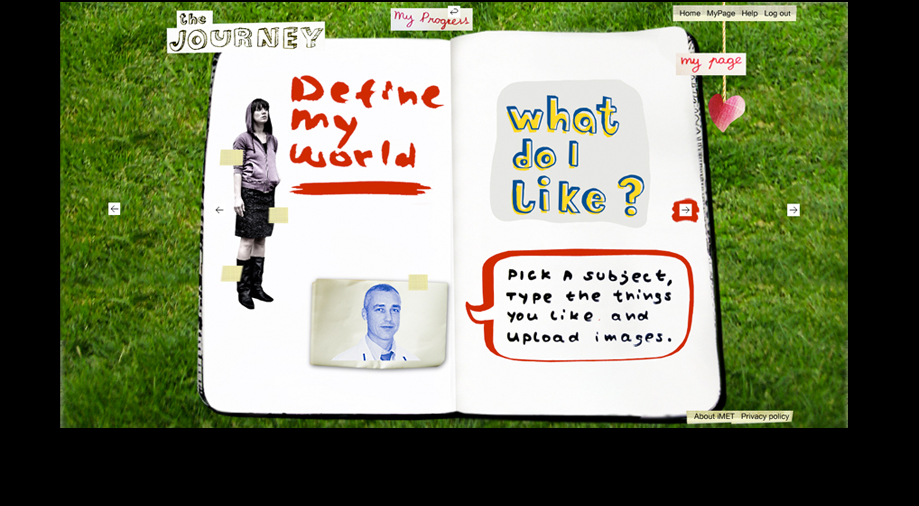 the
JOURNEY
My Progress
Home MyPage Help Log out
my page
Define
my
world
what
do I
like?
PICK A subject,
Type the things
you like and
upload images.
About iMET Privacy policy